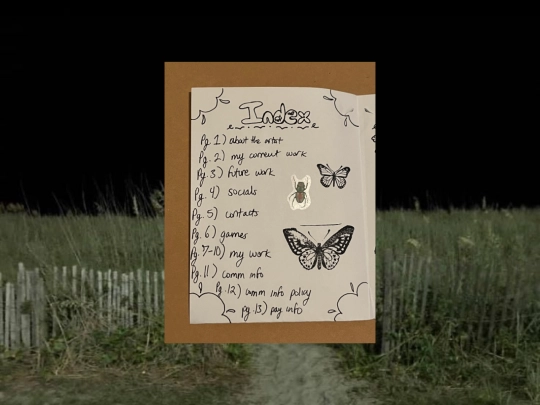 Index
Pg. 1) about the artist
Pg. 2) my current work
Pg. 3) future work
Pg. 4) socials
Pg. 5) contacts
Pg. 6) games
Pg. 7-10) my work
Pg. 11) comm info
Pg. 12) comm info policy
Pg. 13) pay info